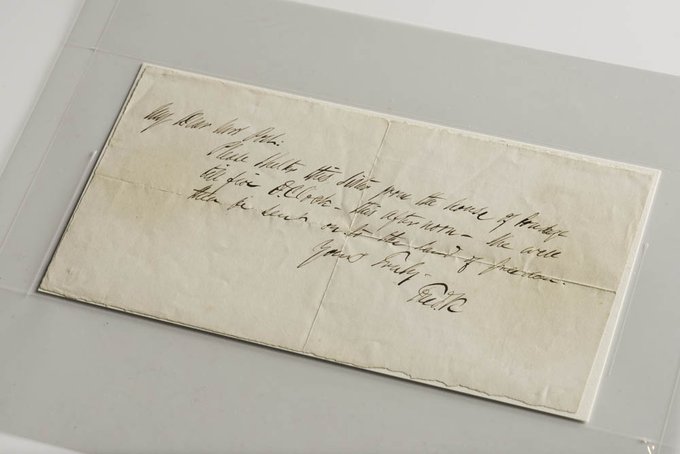 My Dear Mrs Post:
Please shelter this Sister from the house of bondage
till five O'Clock — this afternoon — She will
then be sent on to the land of freedom.
Yours Truly,
Fred. K